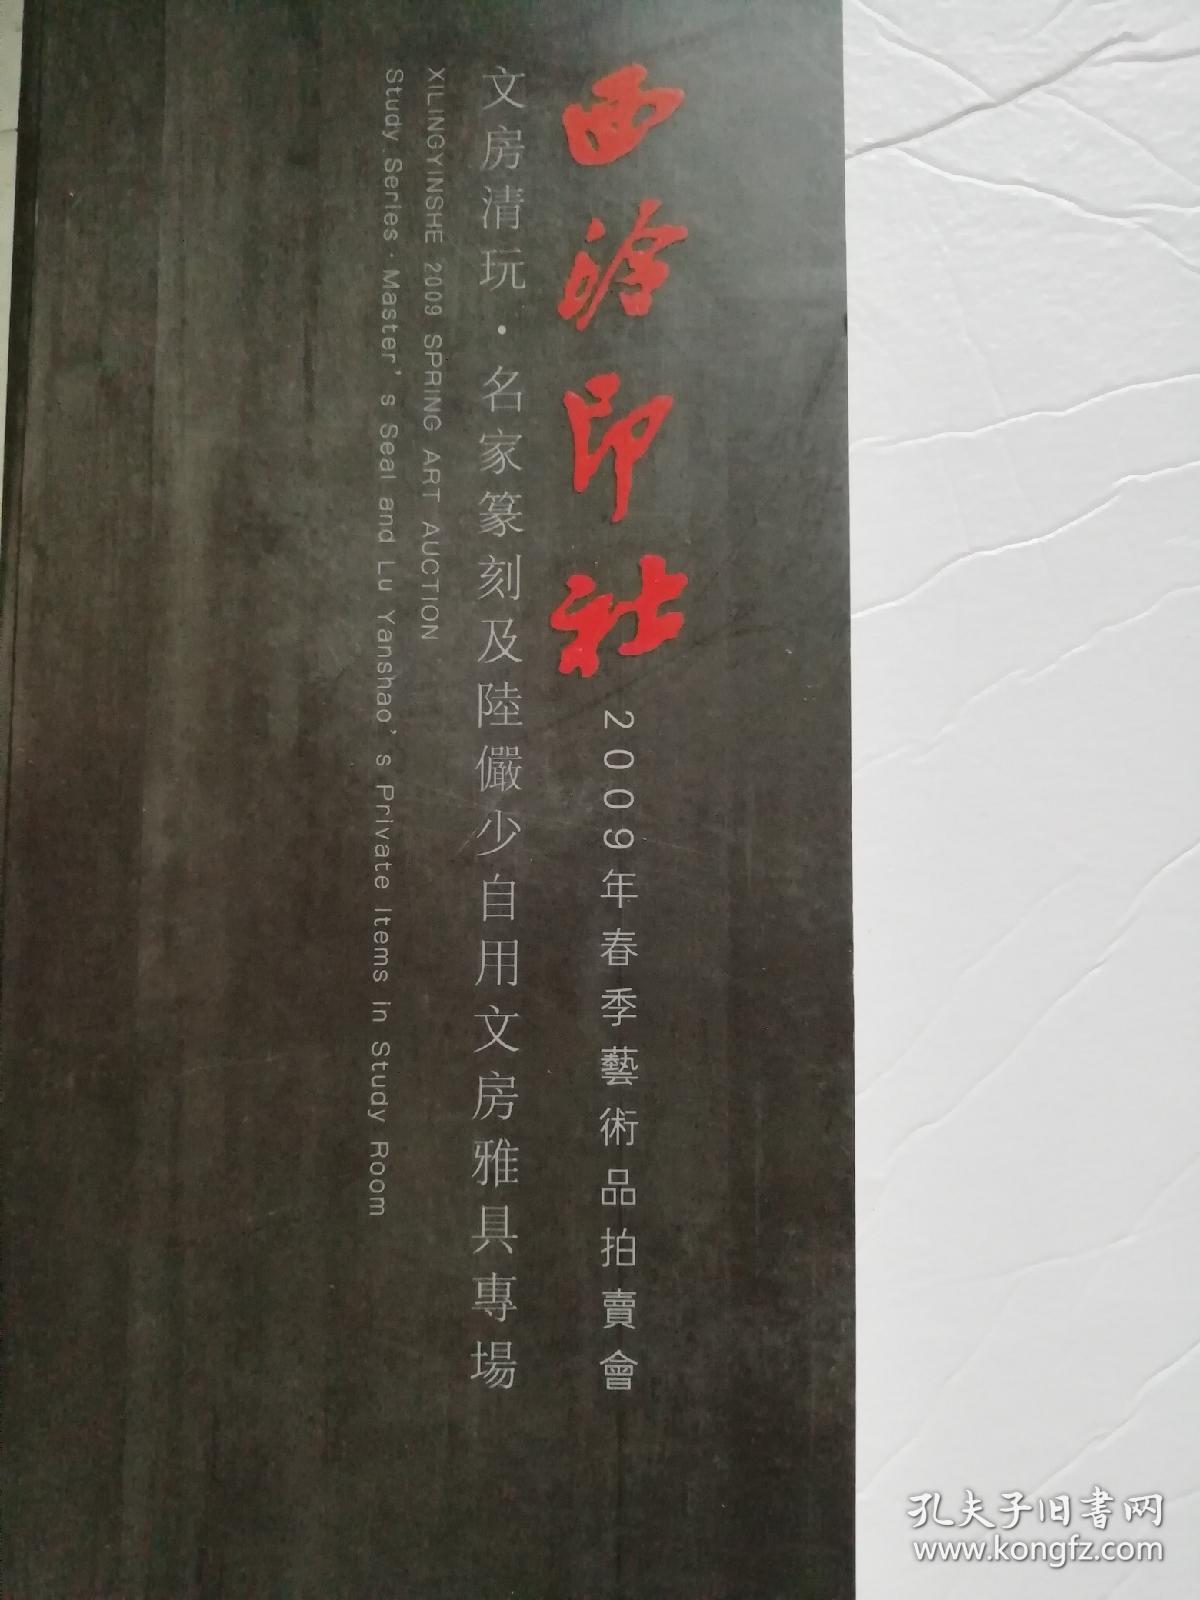 西泠印社
2009年春季藝術品拍賣會
文房清玩·名家篆刻及陸儼少自用文房雅具專場
XILINGYINSHE 2009 SPRING ART AUCTION
Study Series·Master's Seal and Lu Yanshao's Private Items in Study Room
孔夫子旧书网
www.kongfz.com